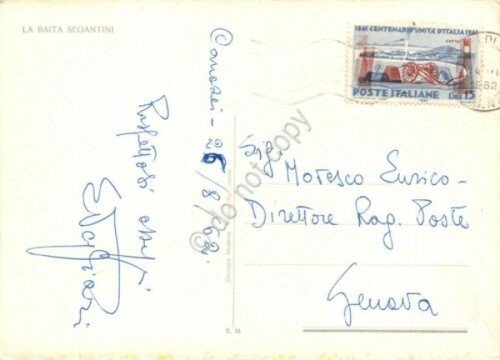 LA BAITA SEGANTINI
1861 CENTENARIO UNITA' D'ITALIA 1961
GAETA
POSTE ITALIANE
LIRE 15
1962
Canazei - 26/8/62.
Rispettosi ossequi
Sig. Moresco Enrico -
Direttore Rag. Poste
Genova
© do not copy
D. 16